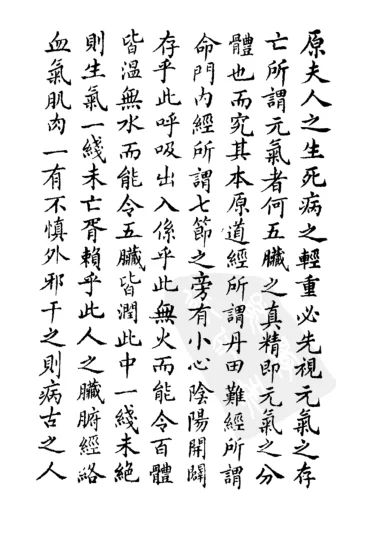 原夫人之生死病之輕重必先視元氣之存
亡所謂元氣者何五臟之真精即元氣之分
體也而究其本原道經所謂丹田難經所謂
命門内經所謂七節之旁有小心陰陽開闢
存乎此呼吸出入係乎此無火而能令百體
皆溫無水而能令五臟皆潤此中一綫未絕
則生氣一綫未亡胥賴乎此人之臟腑經絡
血氣肌肉一有不慎外邪干之則病古之人